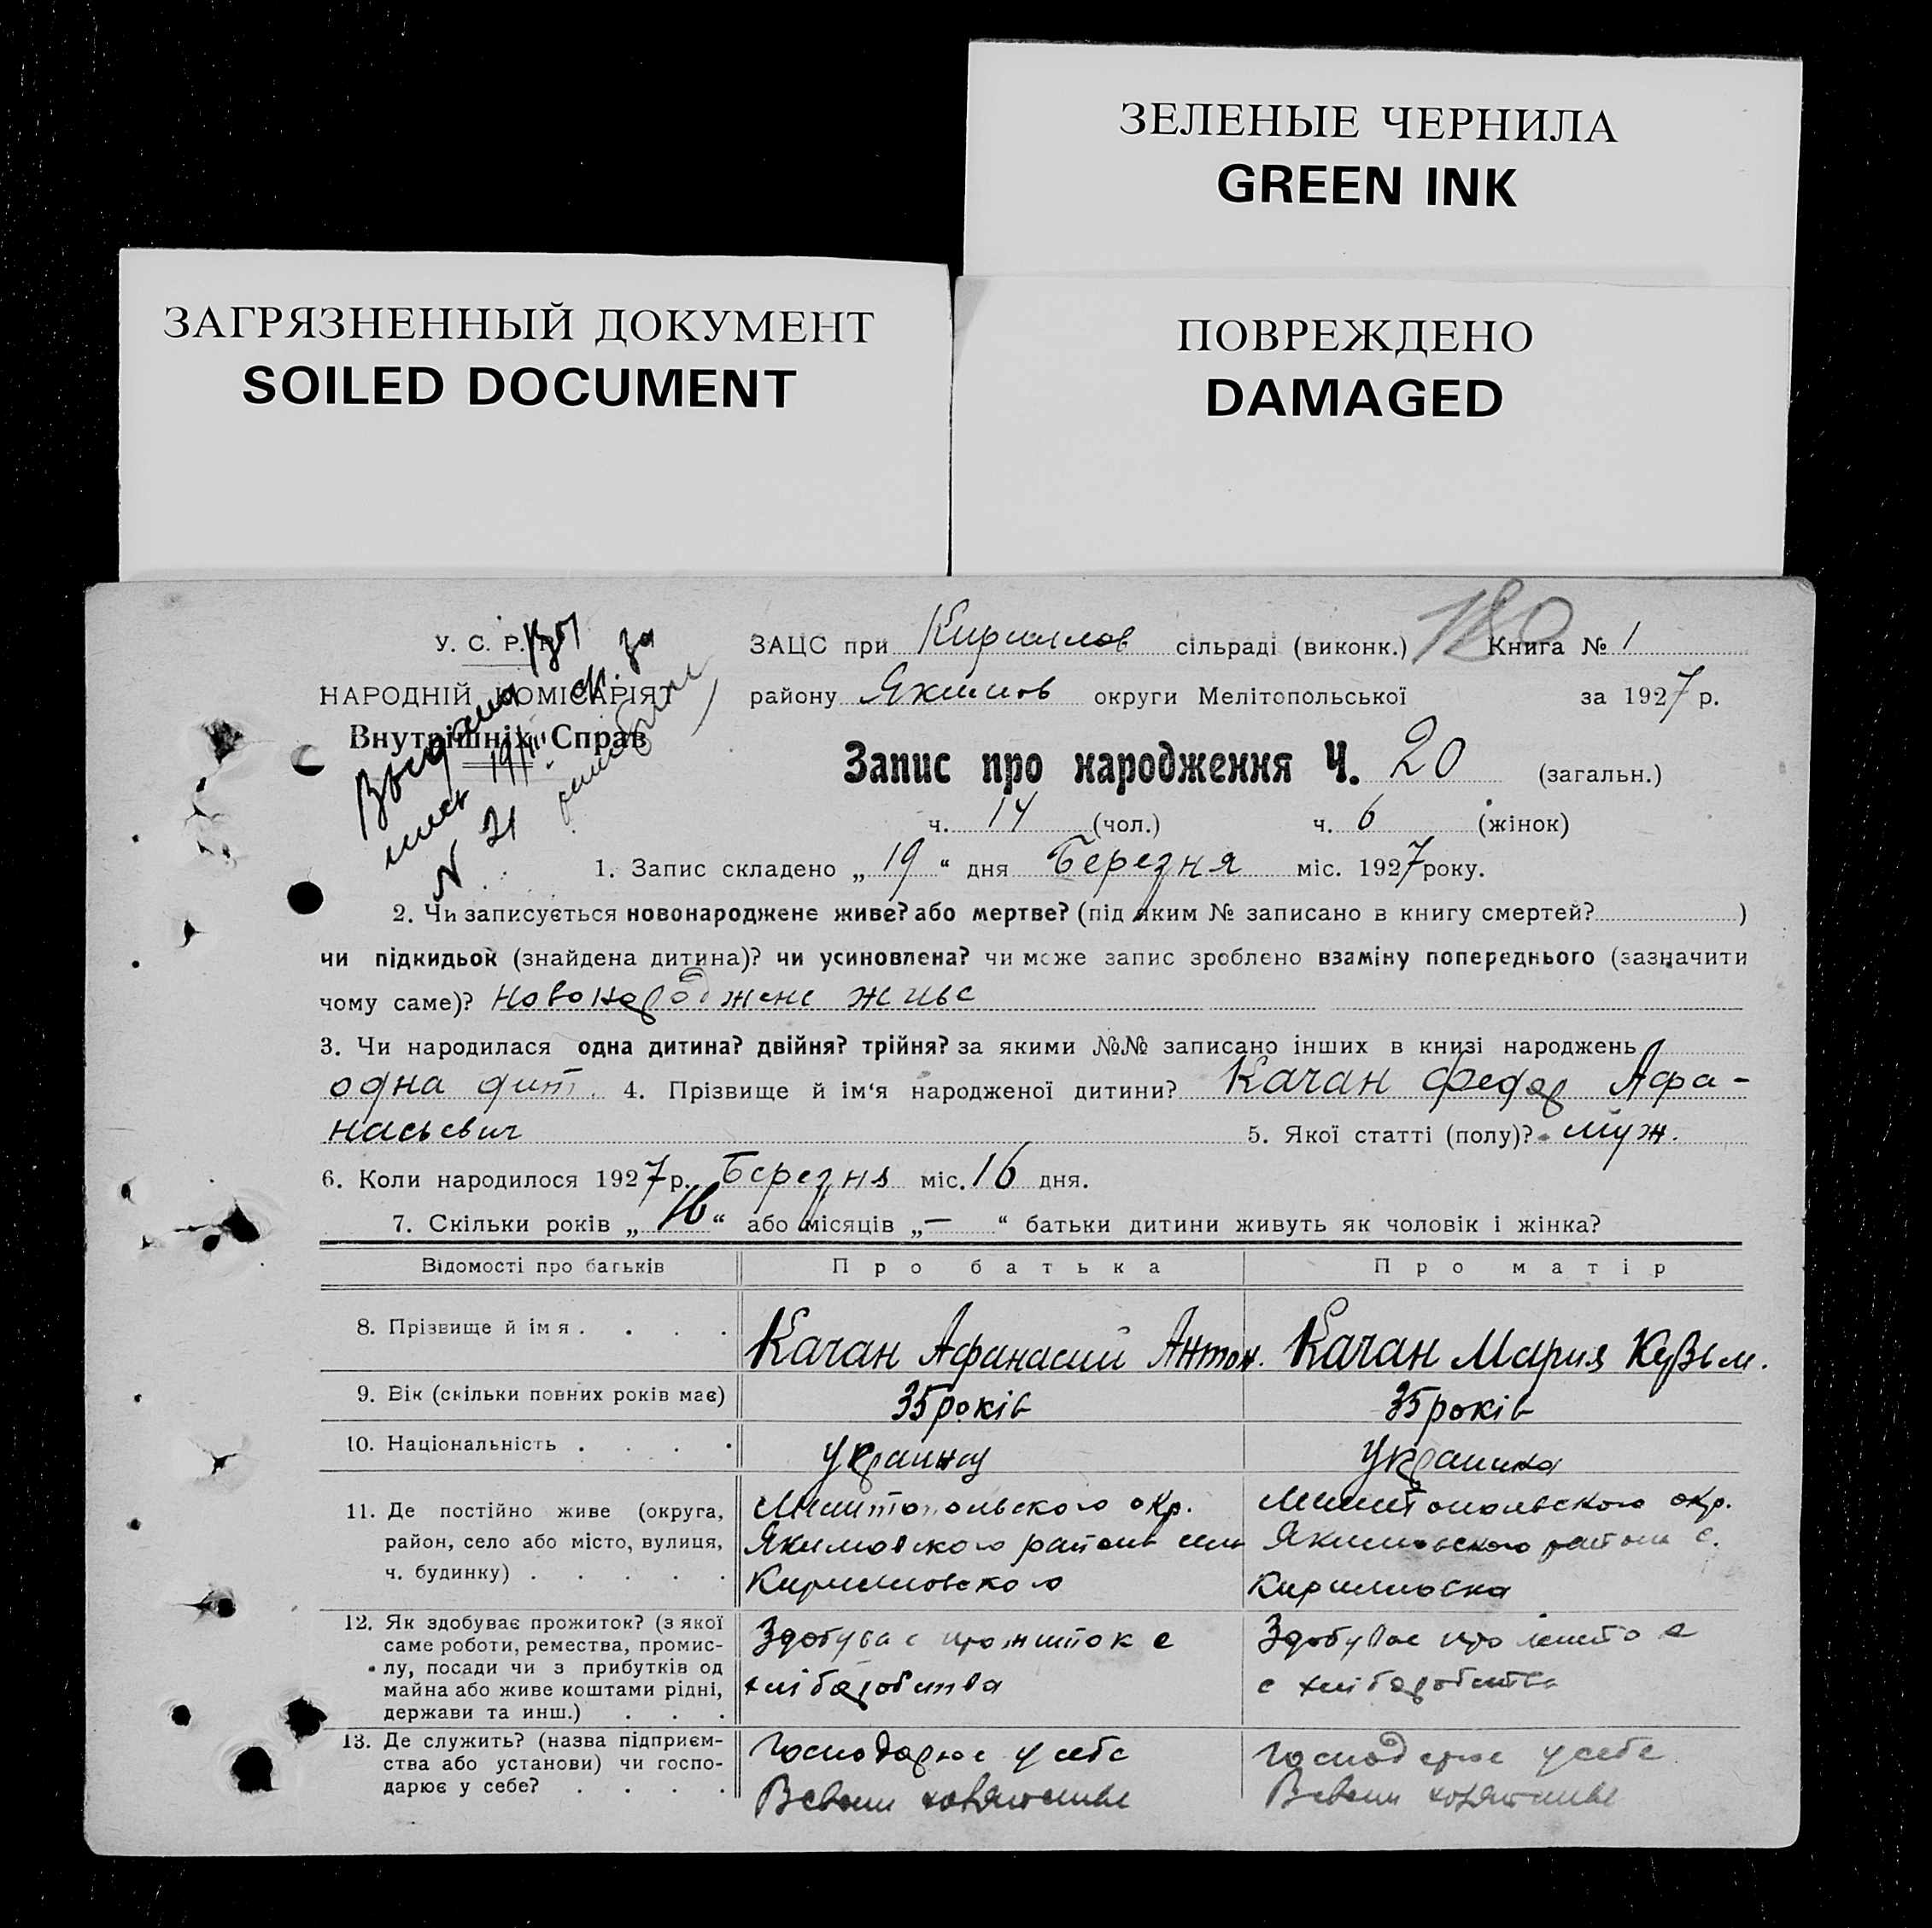 ЗЕЛЕНЫЕ ЧЕРНИЛА
GREEN INK
ЗАГРЯЗНЕННЫЙ ДОКУМЕНТ
SOILED DOCUMENT
ПОВРЕЖДЕНО
DAMAGED
180
У. С. Р. Р.
НАРОДНІЙ КОМІСАРІЯТ
Внутрішніх Справ
N 21
ЗАЦС при Кириллов сільраді (виконк.) Книга № 1
району Якимов округи Мелітопольської за 1927 р.
Запис про народження Ч. 20 (загальн.)
ч. 14 (чол.) ч. 6 (жінок)
1. Запис складено „ 19 “ дня Березня міс. 1927 року.
2. Чи записується новонароджене живе? або мертве? (під яким № записано в книгу смертей? )
чи підкидьок (знайдена дитина)? чи усиновлена? чи може запис зроблено взаміну попереднього (зазначити
чому саме)? Новонароджене живе
3. Чи народилася одна дитина? двійня? трійня? за якими №№ записано інших в книзі народжень
одна дит. 4. Прізвище й ім‘я народженої дитини? Качан Федор Афа-
насьевич 5. Якої статті (полу)? муж.
6. Коли народилося 1927 р. Березня міс. 16 дня.
7. Скільки років „ 16 “ або місяців „ — “ батьки дитини живуть як чоловік і жінка?
Відомості про батьків Про батька Про матір
8. Прізвище й ім я . . . . Качан Афанасий Антон. Качан Мария Кузьм.
9. Вік (скільки повних років має) 35 років 35 років
10. Національність . . . . Украинец Украинка
11. Де постійно живе (округа, Мелитопольского окр. Мелитопольского окр.
район, село або місто, вулиця, Якимовского района села Якимовского района с.
ч. будинку) . . . . . Кирилловского Кирилловка
12. Як здобуває прожиток? (з якої Здобуває прожиток с Здобуває
саме роботи, ремества, промис-
лу, посади чи з прибутків од хліборобитва с хліборобитва
майна або живе коштами рідні,
держави та инш.) . . .
13. Де служить? (назва підприєм- Господарює у себе Господарює у себе
ства або установи) чи госпо-
дарює у себе? . . . .